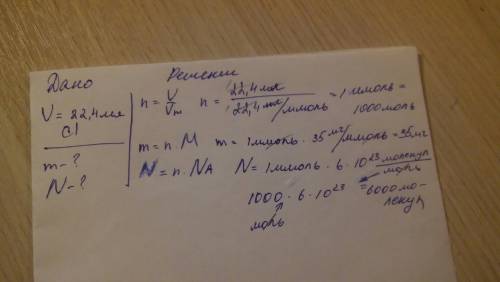 Дано
Решение
V = 22,4 мл
Cl
m - ?
N - ?
n = V/Vm n = 22,4 мл / 22,4 мл/ммоль = 1 ммоль =
1000 моль
m = n · M m = 1 ммоль · 35 мг/ммоль = 35 мг
N = n · NA N = 1 ммоль · 6 · 10²³ молекул/моль
1000 · 6 · 10²³ = 6000 мо-
лекул
моль